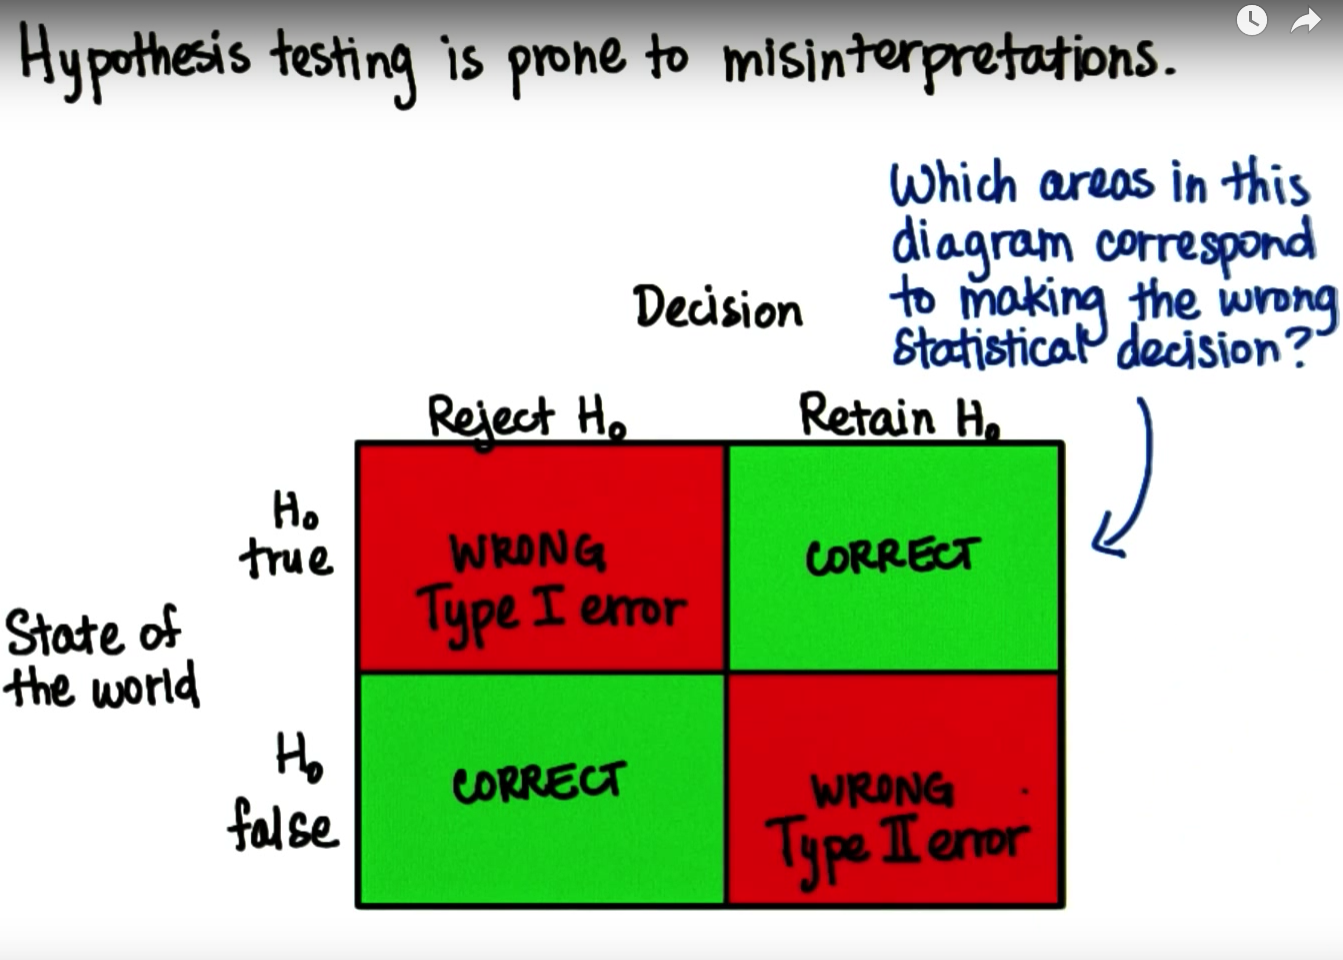 Hypothesis testing is prone to misinterpretations.
Which areas in this
diagram correspond
to making the wrong
statistical decision?
Decision
Reject H₀
Retain H₀
State of
the world
H₀
true
WRONG
Type I error
CORRECT
H₀
false
CORRECT
WRONG
Type II error